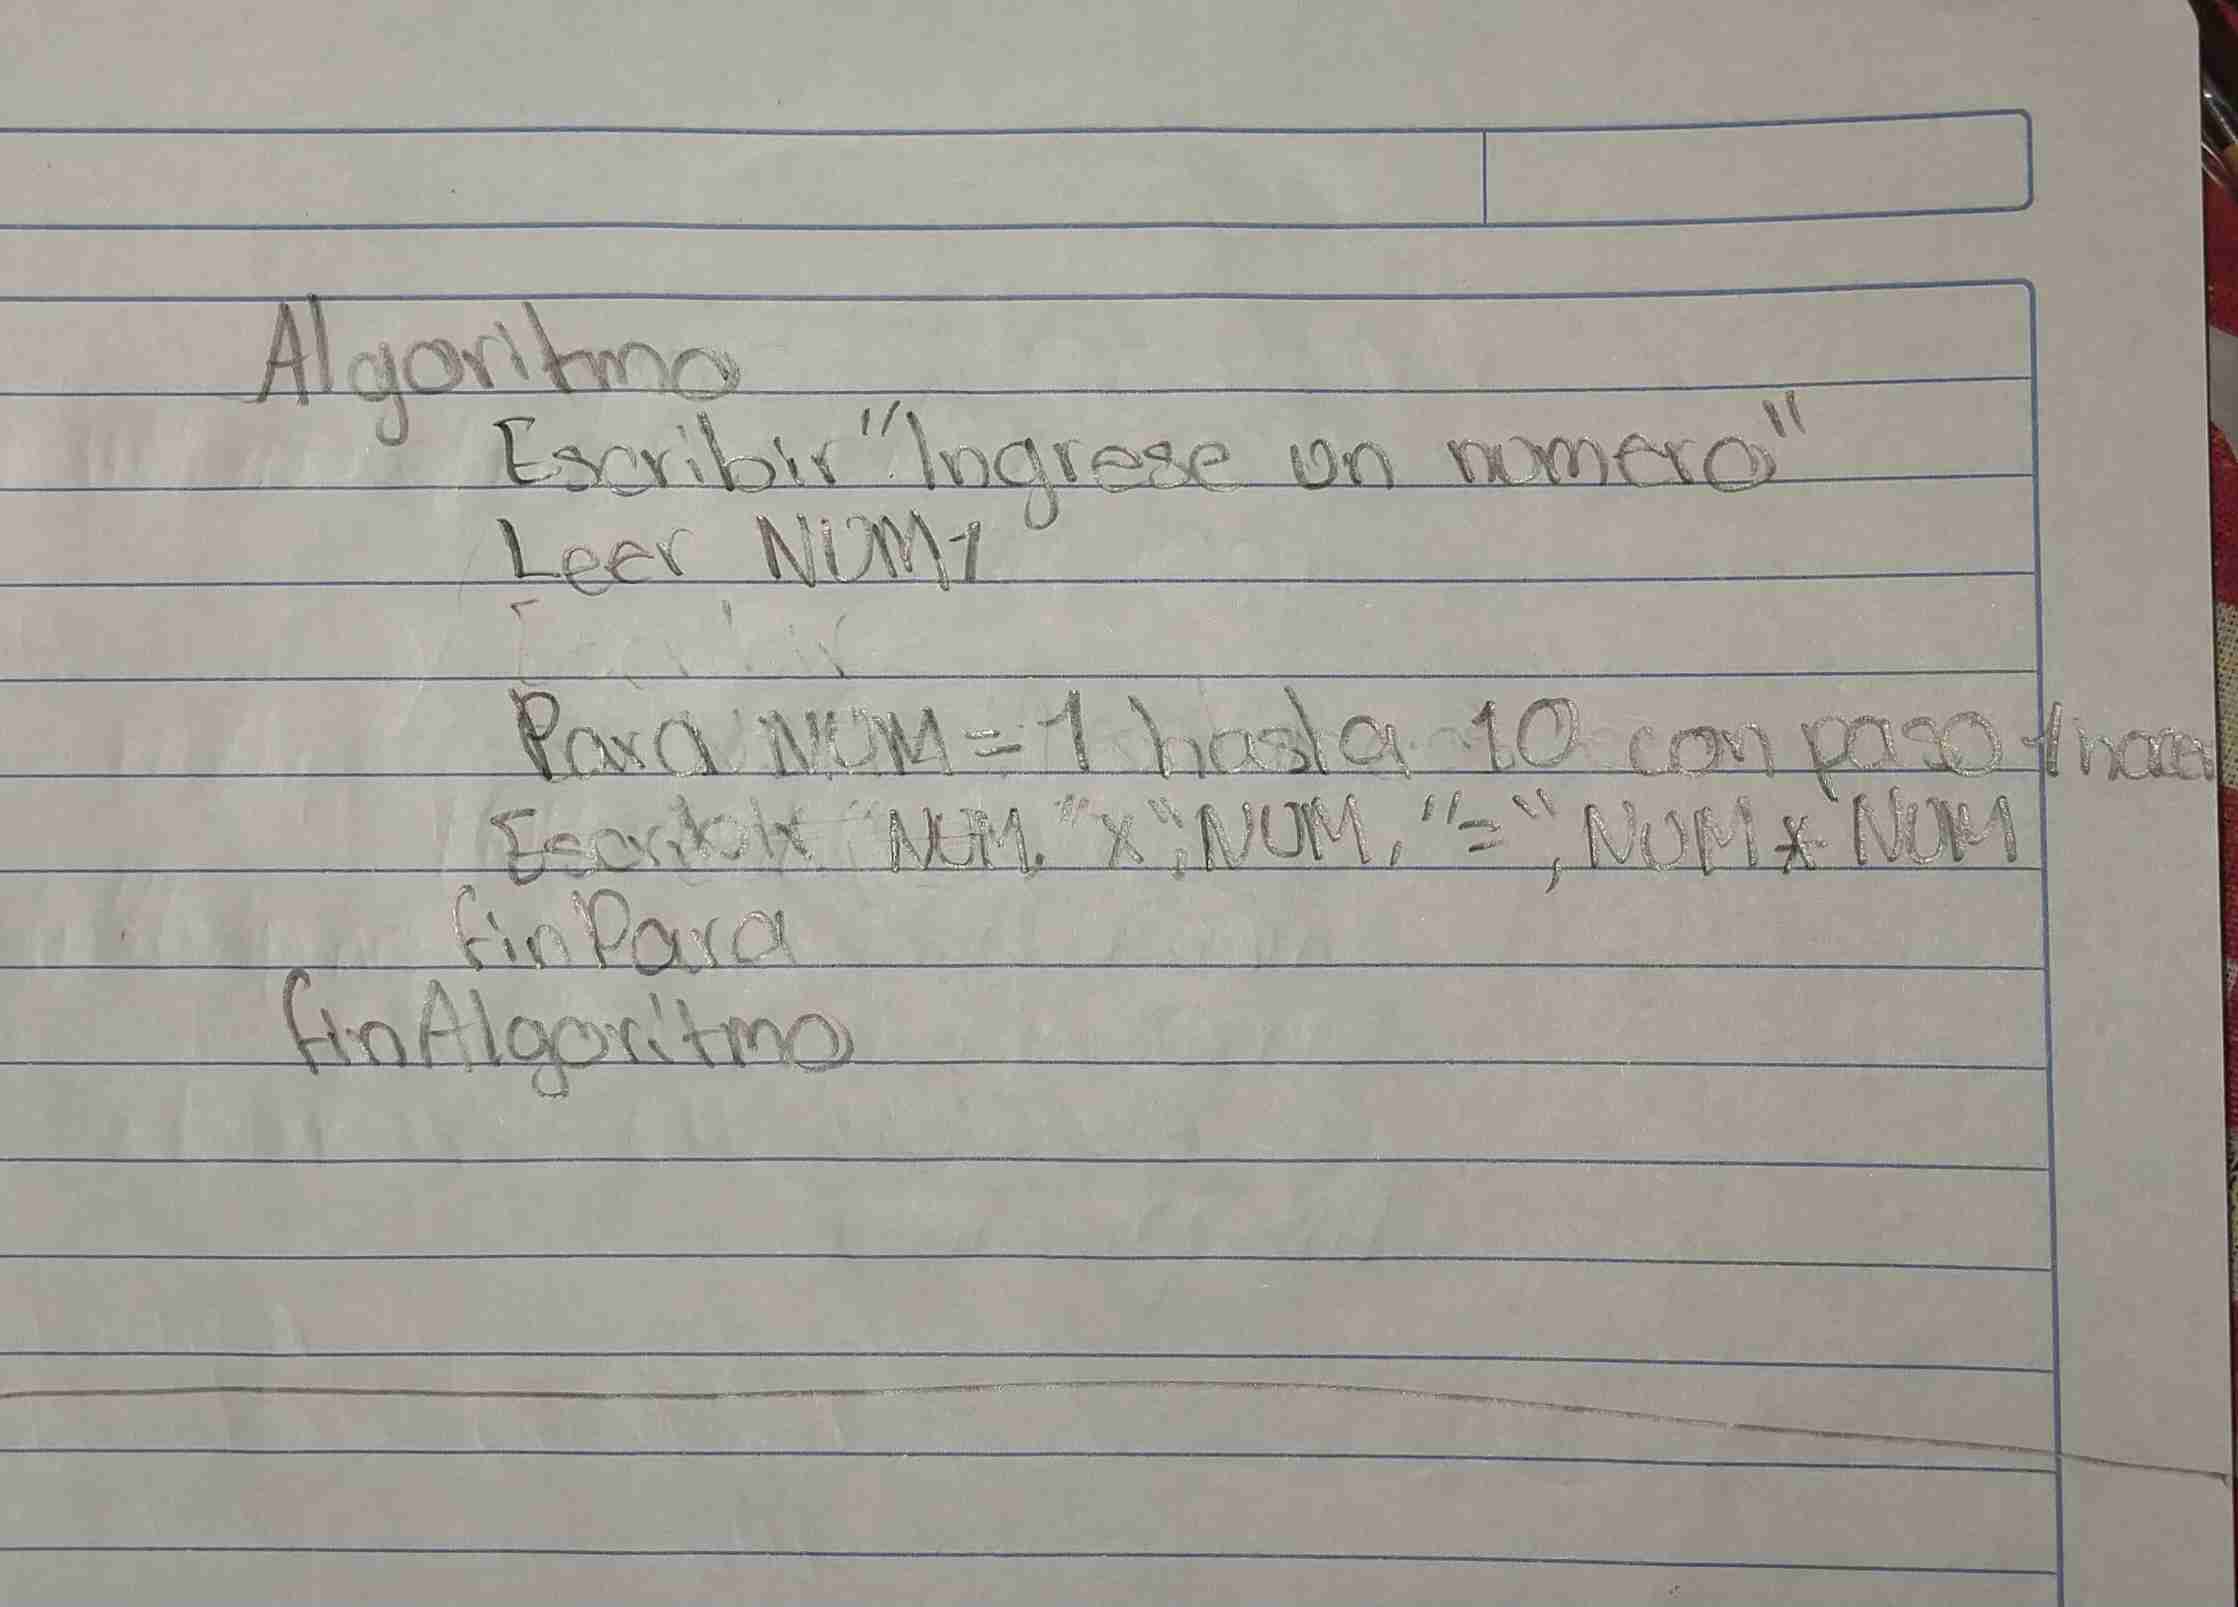 Algoritmo
Escribir "Ingrese un numero"
Leer NUM1
Para NUM = 1 hasta 10 con paso 1 hacer
Escribir NUM. "x", NUM, "=", NUM x NUM
finPara
finAlgoritmo